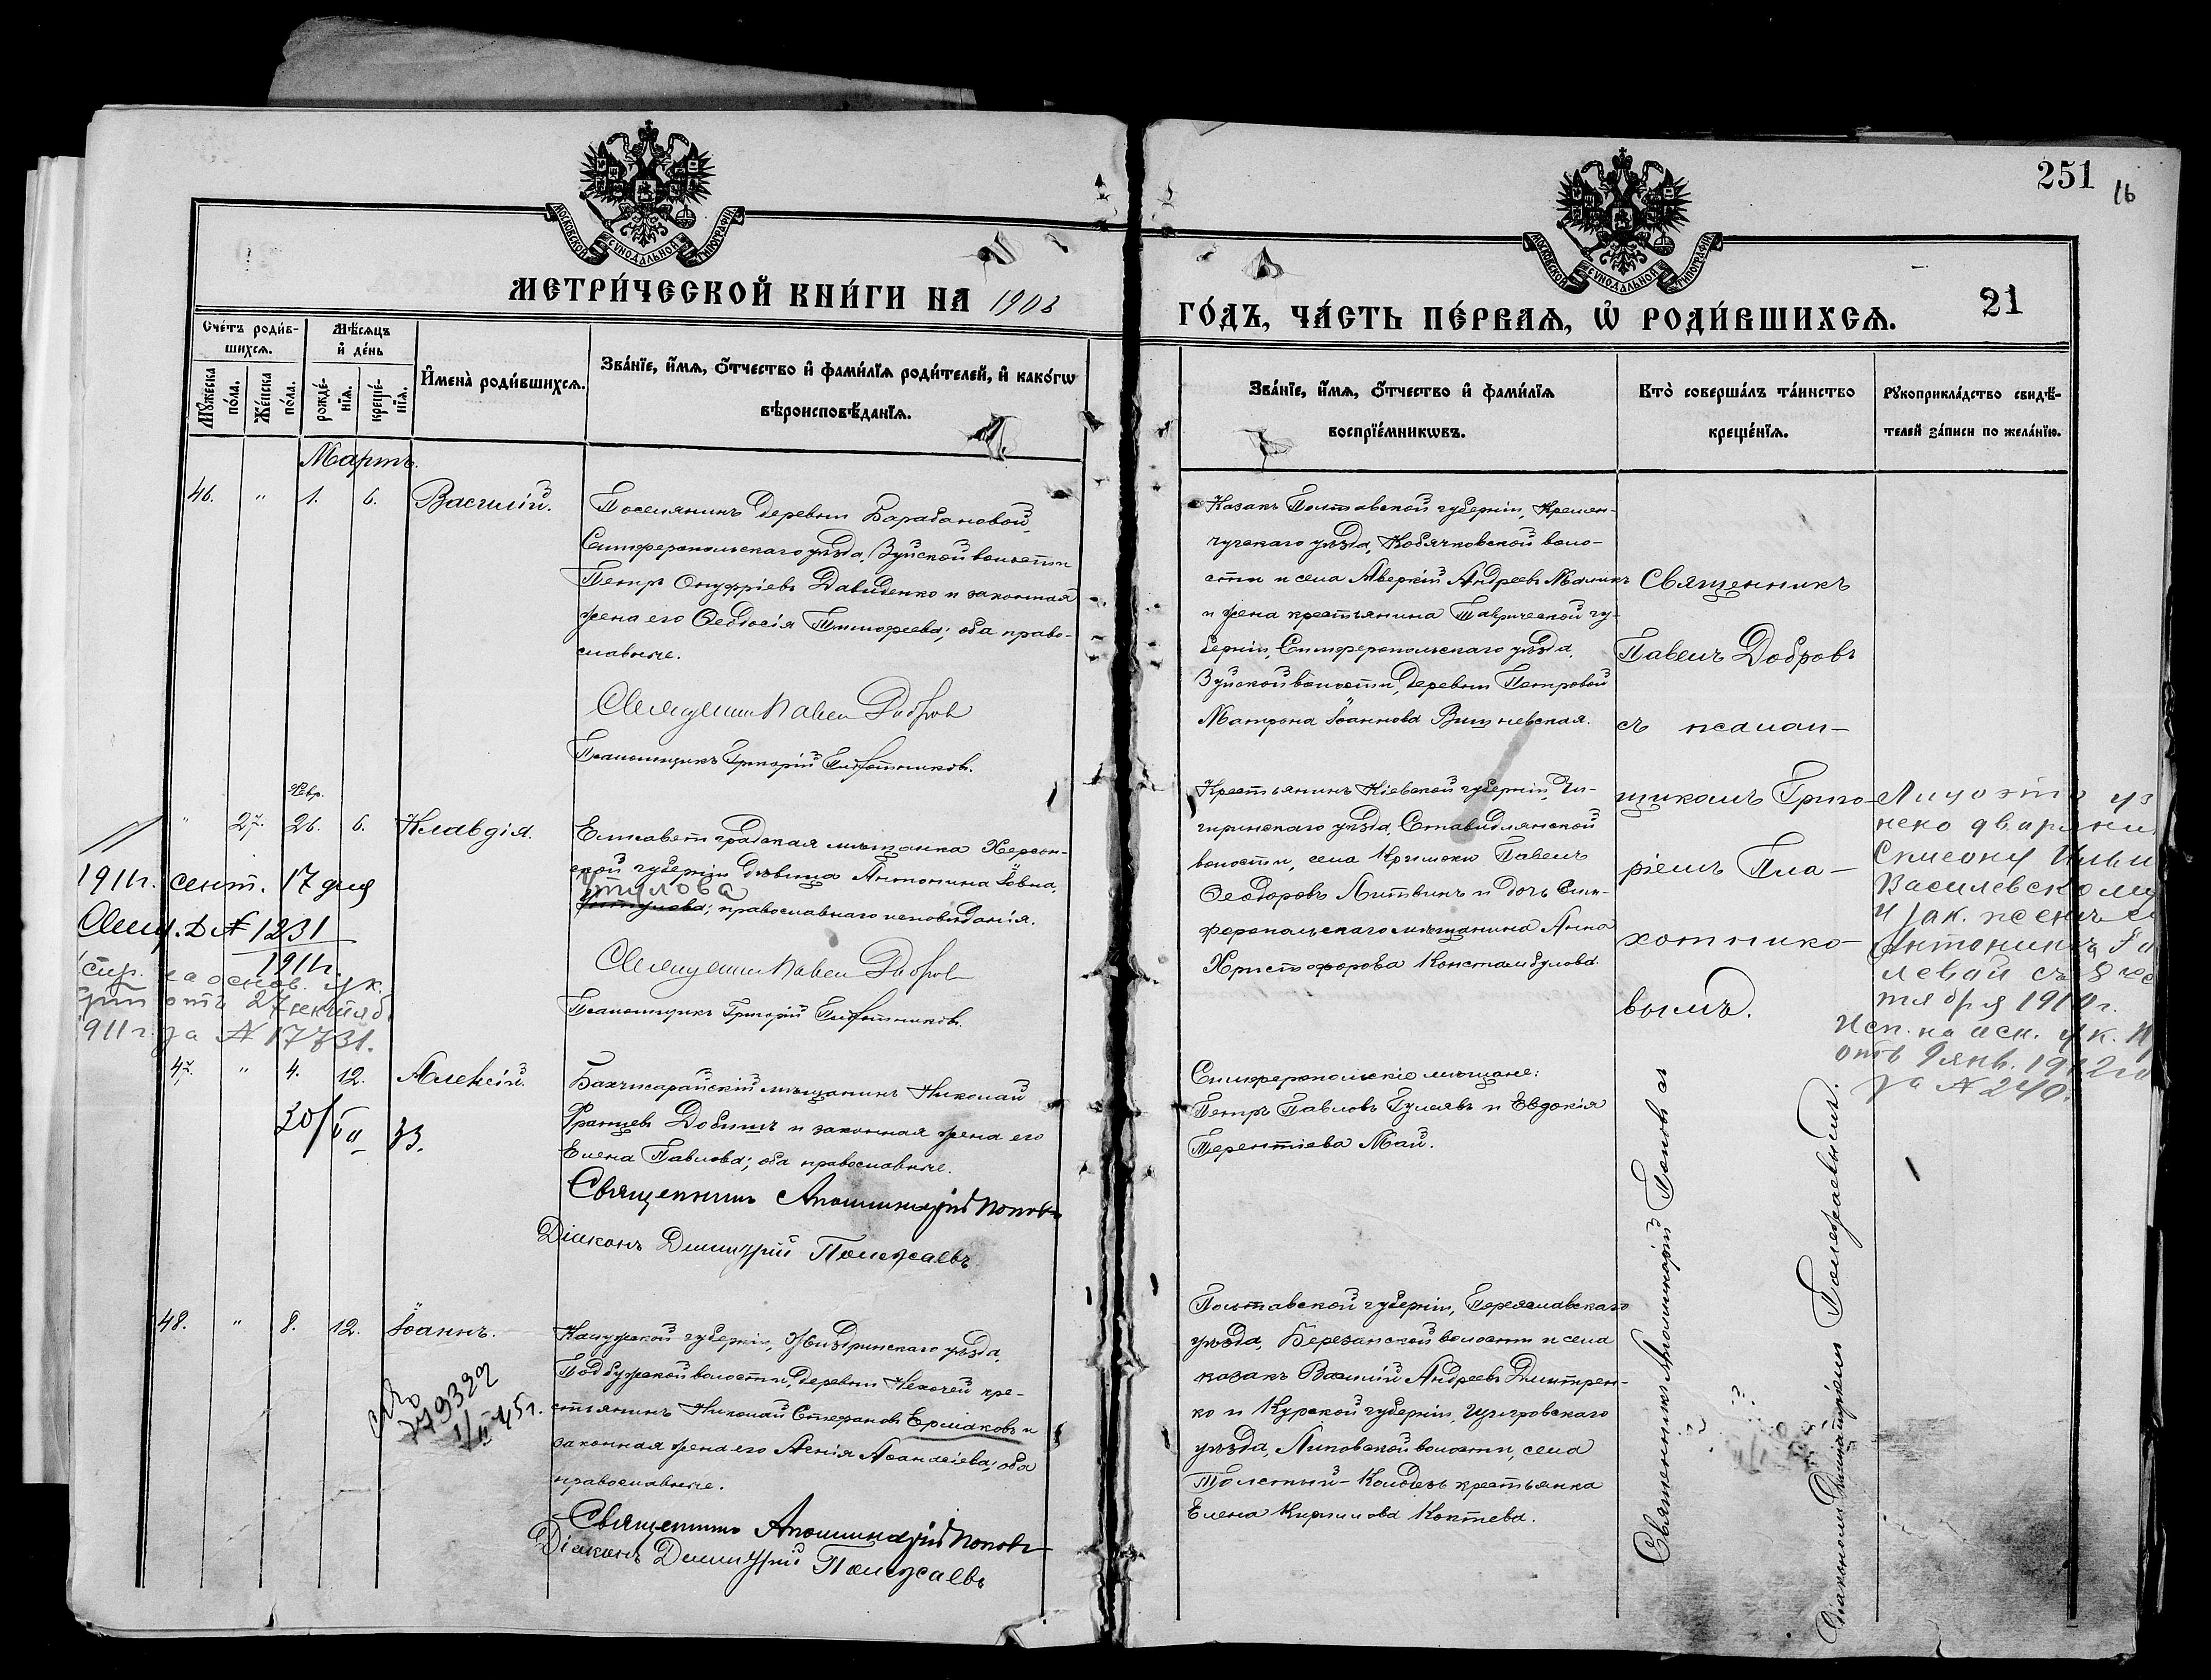 251
16
МОСКОВСКОЙ СѴНОДАЛЬНОЙ ТИПОГРАФІИ
МОСКОВСКОЙ СѴНОДАЛЬНОЙ ТИПОГРАФІИ
МЕТРИ́ЧЕСКОЙ КНИ́ГИ НА 1908
ГО́ДЪ, ЧА́СТЬ ПЕ́РВАѦ, Ѡ҆ РОДИ́ВШИХСѦ.
21
Сче́тъ роди́в-
шихсѧ.
Мꙋ́жеска по́ла.
Же́нска по́ла.
Мѣ́сѧцъ
и҆ де́нь
рожде́-нїѧ.
креще́-нїѧ.
И҆мена̀ роди́вшихсѧ.
Зва́нїе, и҆́мѧ, ѻ҆́тчество и҆ фами́лїѧ роди́телей, и҆ како́гѡ
вѣроисповѣ́данїѧ.
Зва́нїе, и҆́мѧ, ѻ҆́тчество и҆ фами́лїѧ
воспрїе́мникѡвъ.
Кто̀ соверша́лъ та́инство
креще́нїѧ.
Рꙋкоприкла́дство свидѣ́-
телей за́писи по жела́нїю.
Мартъ.
46. " 1. 6. Василій.
Поселянинъ деревни Барабановой,
Симферопольскаго уѣзда, Зуйской волости
Петръ Онуфріевъ Давиденко и законная
жена его Ѳеодосія Тимофеева; оба право-
славные.
Священникъ Павелъ Добровъ
Псаломщикъ Григорій Плохотниковъ.
Казакъ Полтавской губерніи, Кремен-
чугскаго уѣзда, Кобячковской воло-
сти и села Аверкій Андреевъ Маликъ
и жена крестьянина Таврической гу-
берніи, Симферопольскаго уѣзда,
Зуйской волости, деревни Петровой
Матрона Іоаннова Вишневская.
Священникъ
Павелъ Добровъ
съ псалом-
щикомъ Григо-
ріемъ Пло-
хотнико-
вымъ.
Февр.
" 27. 26. 6. Клавдія.
Елисаветградская мѣщанка Херсон-
ской губерніи дѣвица Антонина Іовна
православнаго исповѣданія.
Священникъ Павелъ Добровъ
Псаломщикъ Григорій Плохотниковъ.
1911г. сент. 17 дня
№ 1231
1911г.
на основ. ук.
отъ 27 сентяб.
1911г. за № 17731.
Крестьянинъ Кіевской губерніи, Чи-
гиринскаго уѣзда, Ставидлянской
волости, села Кримки Павелъ
Ѳеодоровъ Литвинъ и дочь Сим-
феропольскаго мѣщанина Анна
Христофорова Константулова.
Василевскому
и зак. женѣ
Антонинѣ
тября 1910г.
Исп. на осн. ук.
отъ 9 янв. 1912
за № 240.
47. " 4. 12. Алексій.
30/VII 33.
Бахчисарайскій мѣщанинъ Николай
Францевъ Добишъ и законная жена его
Елена Павлова; оба православные.
Священникъ Аполлинарій Поповъ
Діаконъ Димитрій Полежаевъ
Симферопольскіе мѣщане:
Петръ Павловъ Гуляевъ и Евдокія
Терентіева Май.
48. " 8. 12. Іоаннъ.
Калужской губерніи, Жиздринскаго уѣзда,
Подбужской волости, деревни Нехочей кре-
стьянинъ Николай Стефановъ Ермаковъ и
законная жена его Агнія Аѳанасіева; оба
православные.
Священникъ Аполлинарій Поповъ
Діаконъ Димитрій Полежаевъ
Полтавской губерніи, Переяславскаго
уѣзда, Березанской волости и села
казакъ Василій Андреевъ Дмитрен-
ко и Курской губерніи, Щигровскаго
уѣзда, Липовской волости, села
Толстый-Колодезь крестьянка
Елена Кирилова Коктева.
Священникъ Аполлинарій Поповъ съ
Діакономъ Димитріемъ Полежаевымъ.